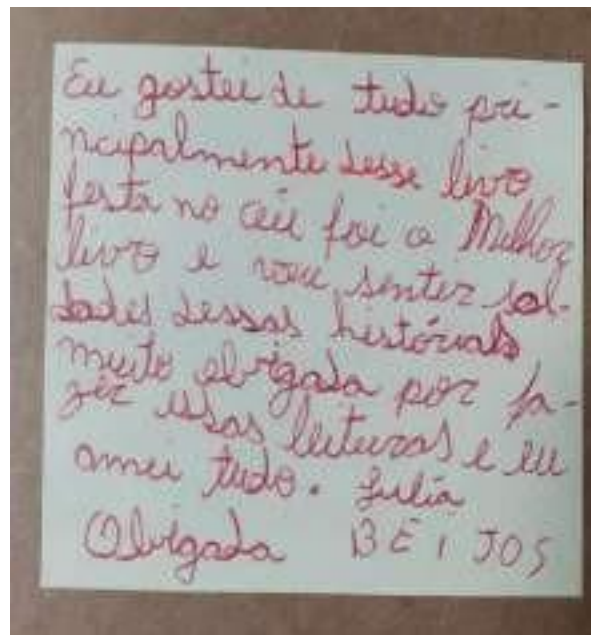 Eu gostei de tudo pri-
ncipalmente desse livro
festa no céu foi o Melhor
livro e vou sentir sal-
dades dessas histórials
muito obrigada por fa-
zer essas leituras e eu
amei tudo. Julia
Obrigada BEIJOS